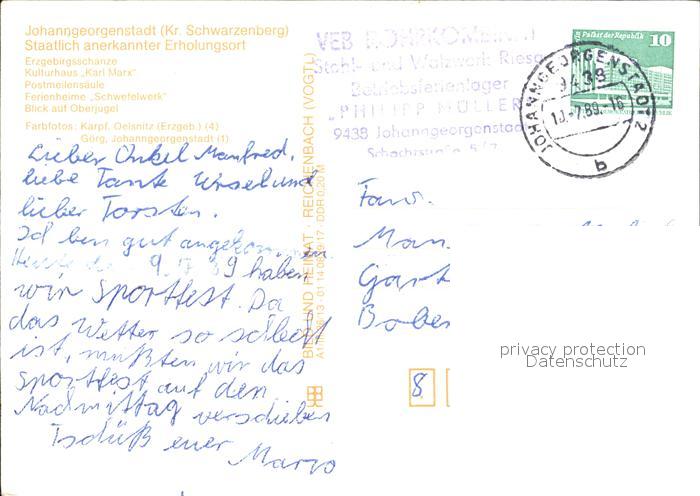 Johanngeorgenstadt (Kr. Schwarzenberg)
Staatlich anerkannter Erholungsort
Erzgebirgsschanze
Kulturhaus „Karl Marx"
Postmeilensäule
Ferienheime „Schwefelwerk"
Blick auf Oberjugel
Farbfotos: Karpf, Oelsnitz (Erzgeb.) (4)
Görg, Johanngeorgenstadt (1)
Lieber Onkel Manfred,
liebe Tante Ursel und
lieber Torsten.
Ich ben gut angekommen.
Heute den 9.7.89 haben
wir Sportfest. Da
das Wetter so schlecht
ist, mußten wir das
Sportfest auf den
Nachmittag verschieben
Tschüß euer
Marco
BILD UND HEIMAT · REICHENBACH (VOGTL)
VEB ROHRKOMBINAT
Stahl- und Walzwerk Riesa
Betriebsferienlager
„PHILIPP MÜLLER
9438 Johanngeorgenstadt
Schachtstraße
Palast der Republik
10
JOHANNGEORGENSTADT 2
9438
10.-7.89.-16
b
Fam.
Man
Gart
Bober
8
privacy protection
Datenschutz